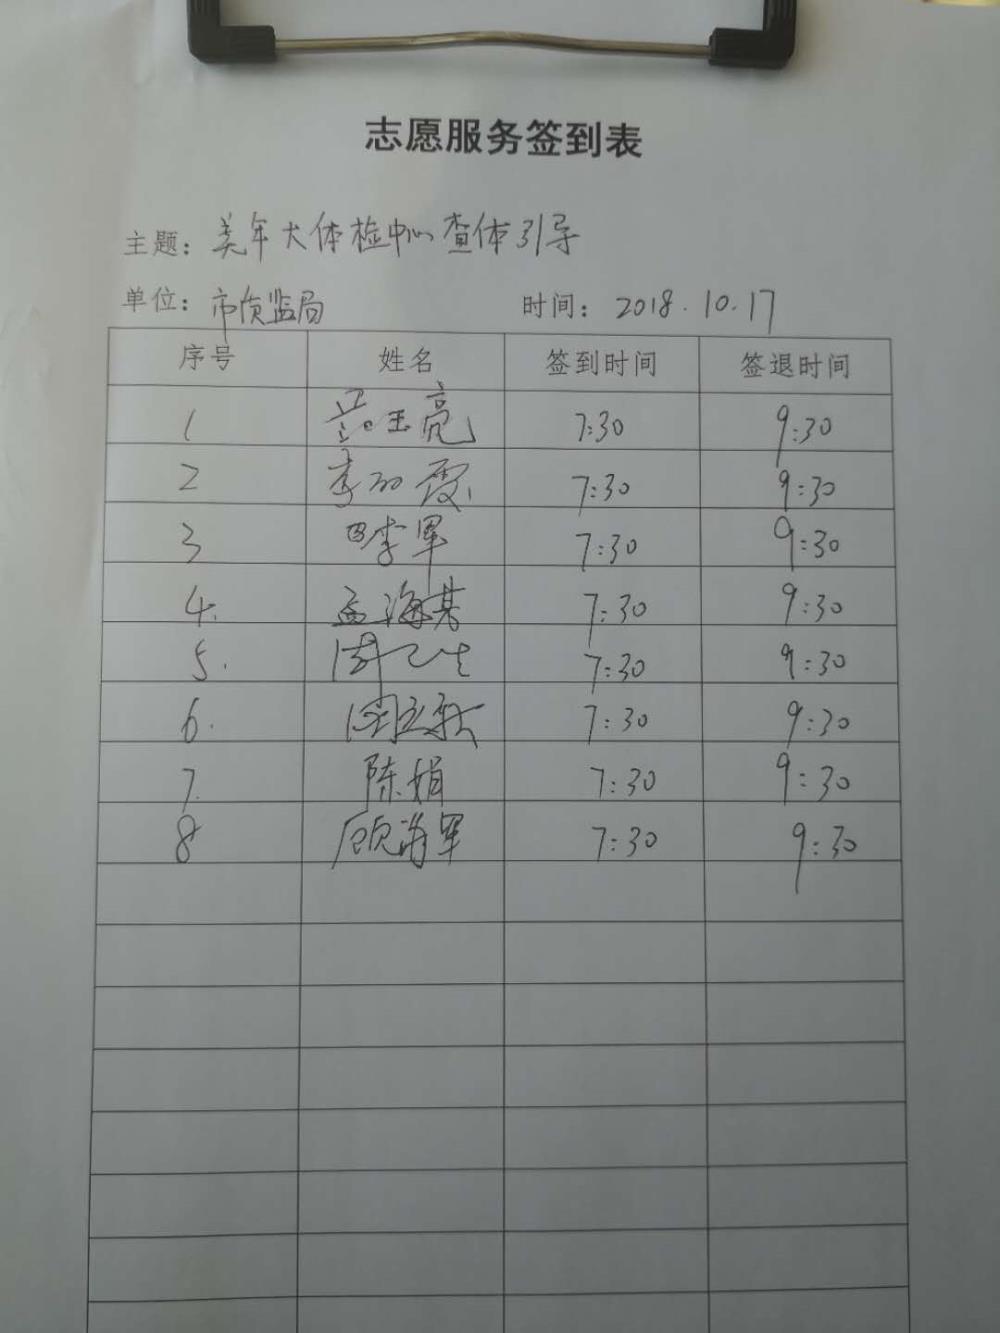 志愿服务签到表
主题: 美年大体检中心查体引导
单位: 市质监局 时间: 2018.10.17
序号 姓名 签到时间 签退时间
1 范玉亮 7:30 9:30
2 李 霞 7:30 9:30
3 田李军 7:30 9:30
4. 孟海 7:30 9:30
5. 7:30 9:30
6. 7:30 9:30
7. 陈娟 7:30 9:30
8 顾海军 7:30 9:30